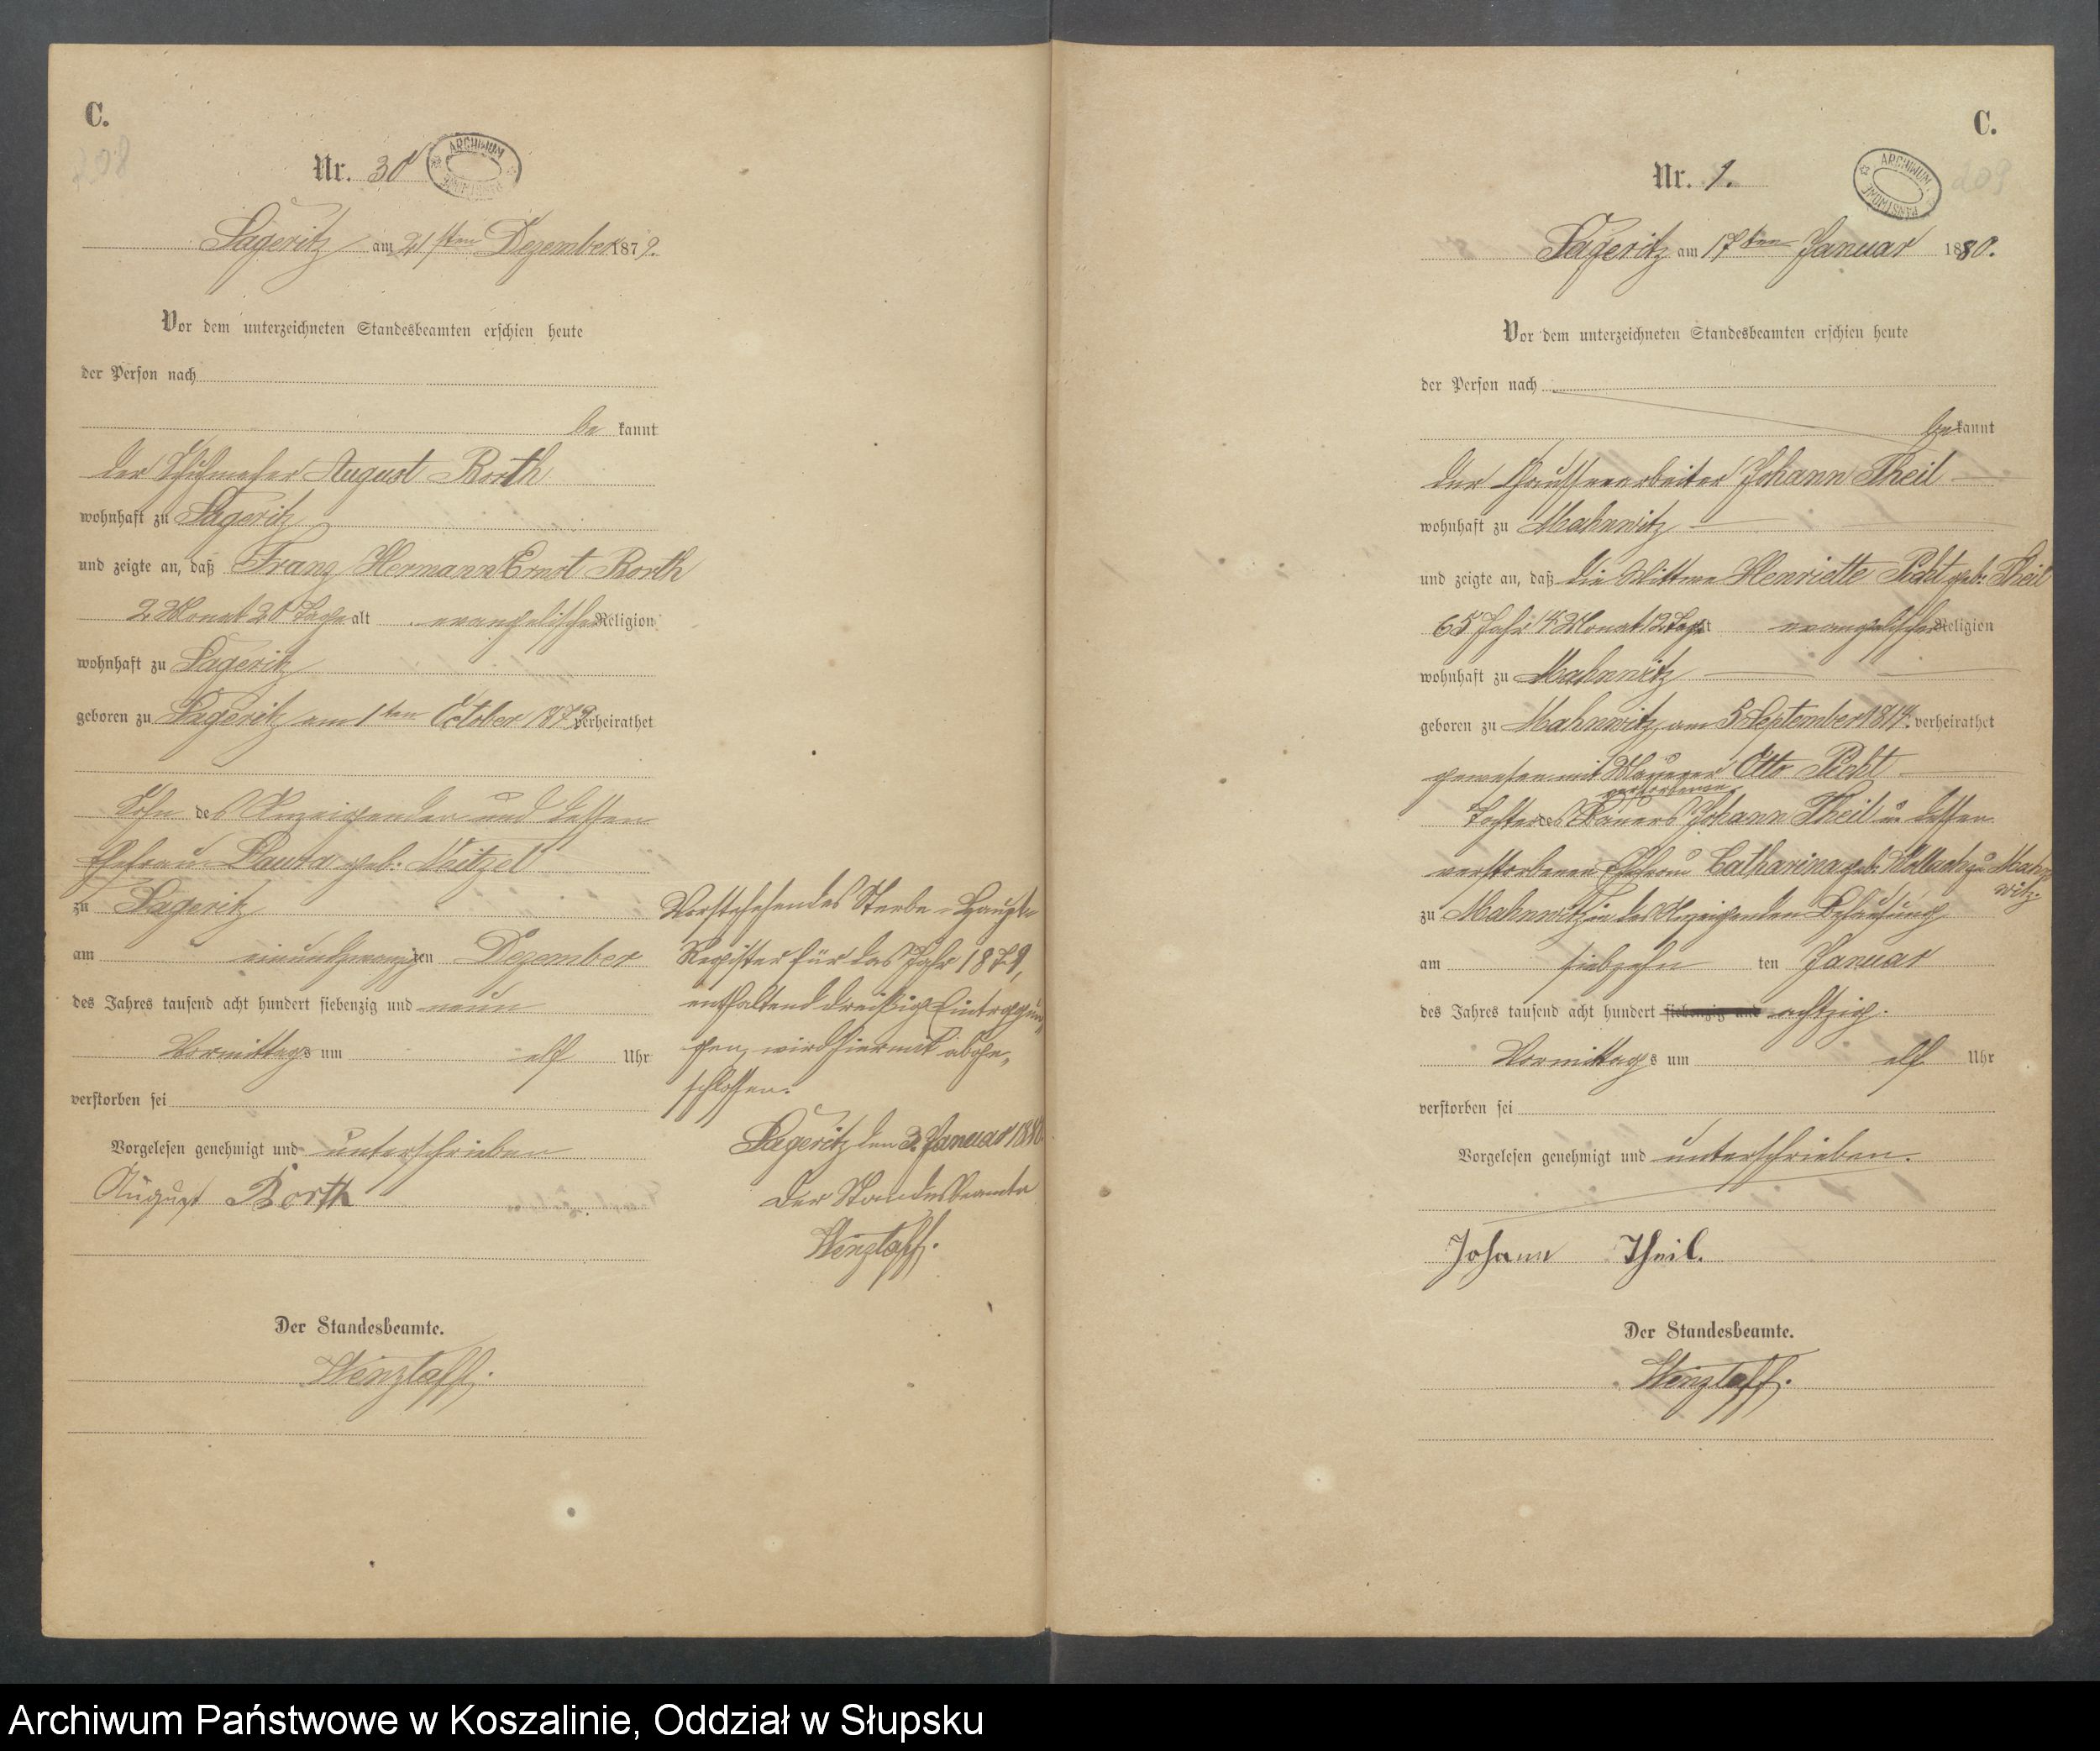 C.
Nr. 30
ARCHIWUM
PAŃSTWOWE
Sageritz am 21sten Dezember 1879.
Vor dem unterzeichneten Standesbeamten erschien heute
der Person nach
be kannt
der Schuhmacher August Borth
wohnhaft zu Sageritz
und zeigte an, daß Franz Hermann Ernst Borth
2 Monat 20 Tage alt evangelischer Religion
wohnhaft zu Sageritz
geboren zu Sageritz am 1ten October 1879 verheirathet
Sohn des Anzeigenden und dessen
Ehefrau Laura geb. Neitzel
zu Sageritz
am einundzwanzigten Dezember
des Jahres tausend acht hundert siebenzig und neun
Vormittags um elf Uhr
verstorben sei
Vorgelesen genehmigt und unterschrieben
August Borth
Der Standesbeamte.
Wenzlaff.
Vorstehendes Sterbe-Haupt-
Register für das Jahr 1879,
enthaltend dreißig Eintragun-
gen, wird hiermit abge-
schlossen.
Sageritz den 3. Januar 1880
Der Standesbeamte
Wenzlaff.
C.
209
Nr. 1.
ARCHIWUM
PAŃSTWOWE
Sageritz am 17ten Januar 1880.
Vor dem unterzeichneten Standesbeamten erschien heute
der Person nach
be kannt
der Chausseearbeiter Johann Theil
wohnhaft zu Mahnwitz
und zeigte an, daß die Wittwe Henriette Picht geb. Theil
65 Jahr 4 Monat 12 Tage alt evangelischer Religion
wohnhaft zu Mahnwitz
geboren zu Mahnwitz, am 5 September 1814. verheirathet
gewesen mit Maurer Otto Picht
verstorbenen
Tochter des Bauers Johann Theil u. dessen
verstorbenen Ehefrau Catharina geb. zu Mahn
witz.
zu Mahnwitz in des Anzeigenden Behausung
am siebzehn ten Januar
des Jahres tausend acht hundert siebenzig und achtzig.
Vormittags um elf Uhr
verstorben sei
Vorgelesen genehmigt und unterschrieben.
Johann Theil.
Der Standesbeamte.
Wenzlaff.
Archiwum Państwowe w Koszalinie, Oddział w Słupsku